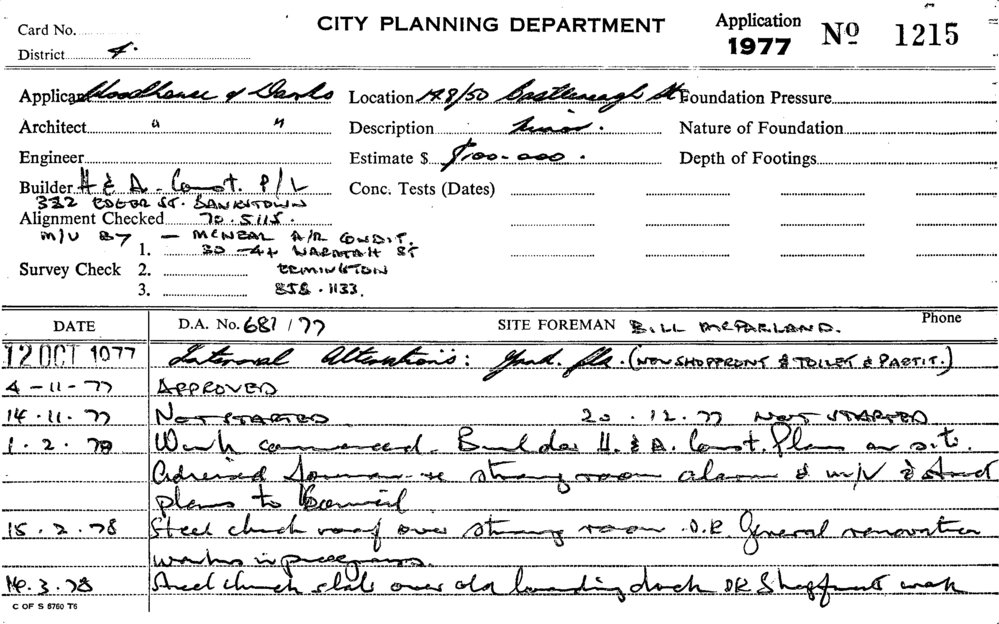 Card No.
CITY PLANNING DEPARTMENT
Application 1977 No 1215
District 4.
Applicant Woodhouse & Danks Location 148/50 Castlereagh St Foundation Pressure
Architect " " Description Minor. Nature of Foundation
Engineer Estimate $ $100-000. Depth of Footings
Builder H & A. Const. P/L Conc. Tests (Dates)
332 EDGAR ST. BANKSTOWN
Alignment Checked 70.5115.
M/V BY — A/R CONDIT.
1. 30-44 WARATAH ST
Survey Check 2. ERMINGTON
3. 858.1133.
DATE D.A. No. 687/77 SITE FOREMAN BILL McPARLAND. Phone
12 OCT 1977 Internal Alterations: Grnd. flr. (NEW SHOPFRONT & TOILET & PARTIT.)
4-11-77 APPROVED
14.11.77 NOT STARTED 20.12.77 NOT STARTED
1.2.78 Work commenced. Builder H. & A. Const. Plans on site.
Advised foreman re strong room alarm & m/V & struct
plans to Council
15.2.78 Steel check roof over strong room O.K. General renovation
works in progress.
.3.78 Steel check slab over old loading dock OK Shopfront work
C OF S 6760 T6